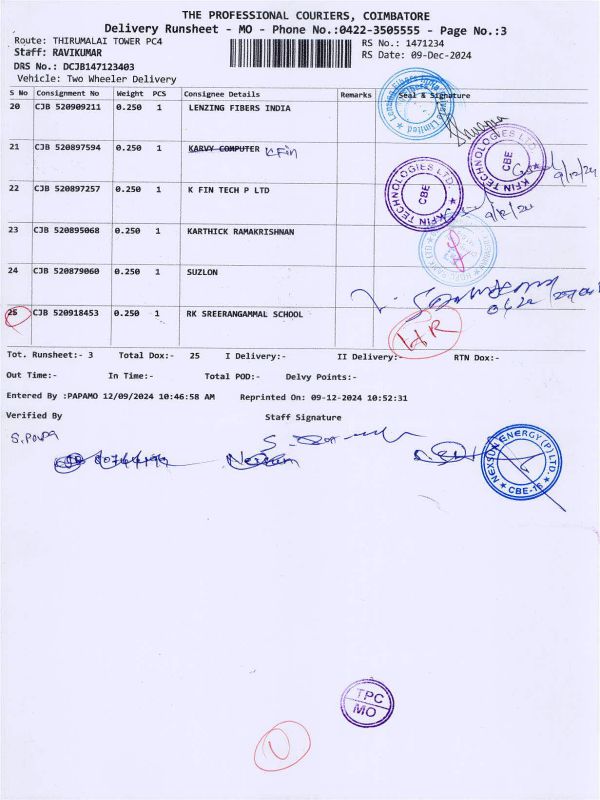 THE PROFESSIONAL COURIERS, COIMBATORE
Delivery Runsheet - MO - Phone No.:0422-3505555 - Page No.:3
Route: THIRUMALAI TOWER PC4 RS No.: 1471234
Staff: RAVIKUMAR RS Date: 09-Dec-2024
DRS No.: DCJB147123403
Vehicle: Two Wheeler Delivery
S No Consignment No Weight PCS Consignee Details Remarks Seal & Signature
20 CJB 520909211 0.250 1 LENZING FIBERS INDIA
21 CJB 520897594 0.250 1 KARVY COMPUTER KFin
KFIN TECHNOLOGIES LTD. CBE
9/12/24
22 CJB 520897257 0.250 1 K FIN TECH P LTD
KFIN TECHNOLOGIES LTD. CBE
9/12/24
23 CJB 520895068 0.250 1 KARTHICK RAMAKRISHNAN
24 CJB 520879060 0.250 1 SUZLON
25 CJB 520918453 0.250 1 RK SREERANGAMMAL SCHOOL
HR
Tot. Runsheet:- 3 Total Dox:- 25 I Delivery:- II Delivery:- RTN Dox:-
Out Time:- In Time:- Total POD:- Delvy Points:-
Entered By :PAPAMO 12/09/2024 10:46:58 AM Reprinted On: 09-12-2024 10:52:31
Verified By Staff Signature
NEXSUN ENERGY (P) LTD. CBE-16
TPC
MO